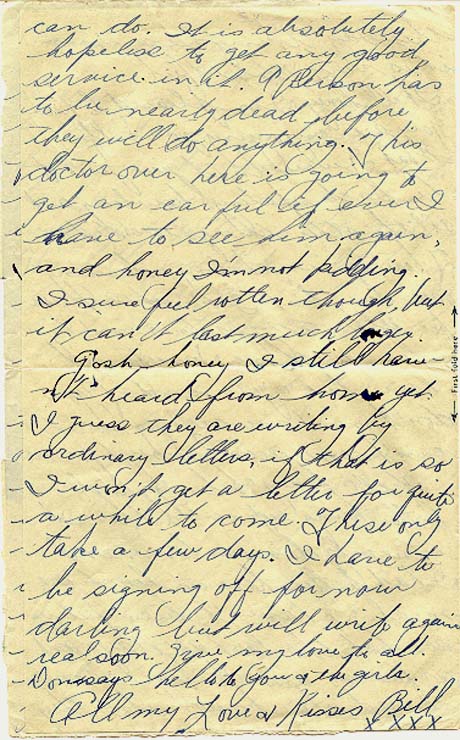 can do. It is absolutely
hopeless to get any good
service in it. A person has
to be nearly dead before
they will do anything. This
doctor over here is going to
get an ear ful if ever I
have to see him again,
and honey I'm not kidding.
I sure feel rotten though, but
it can't last much longer.
Gosh honey I still have-
n't heard from home yet.
I guess they are writing by
ordinary letters, if that is so
I won't get a letter for quite
a while to come. These only
take a few days. I have to
be signing off for now
darling but will write again
real soon. Give my love to all.
says hello to you & the girls.
All my Love & Kisses Bill
X X X X
First fold here